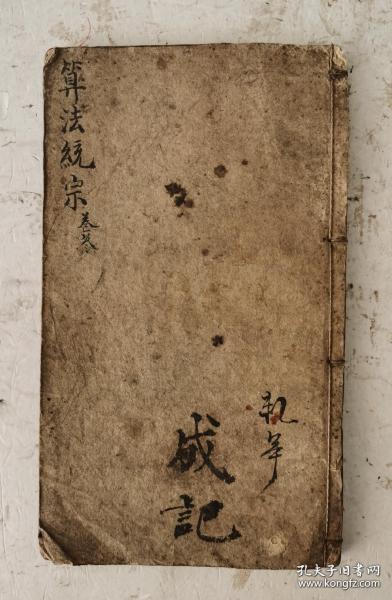 算法統宗
卷癸
執年
成記
孔夫子旧書网
www.kongfz.com